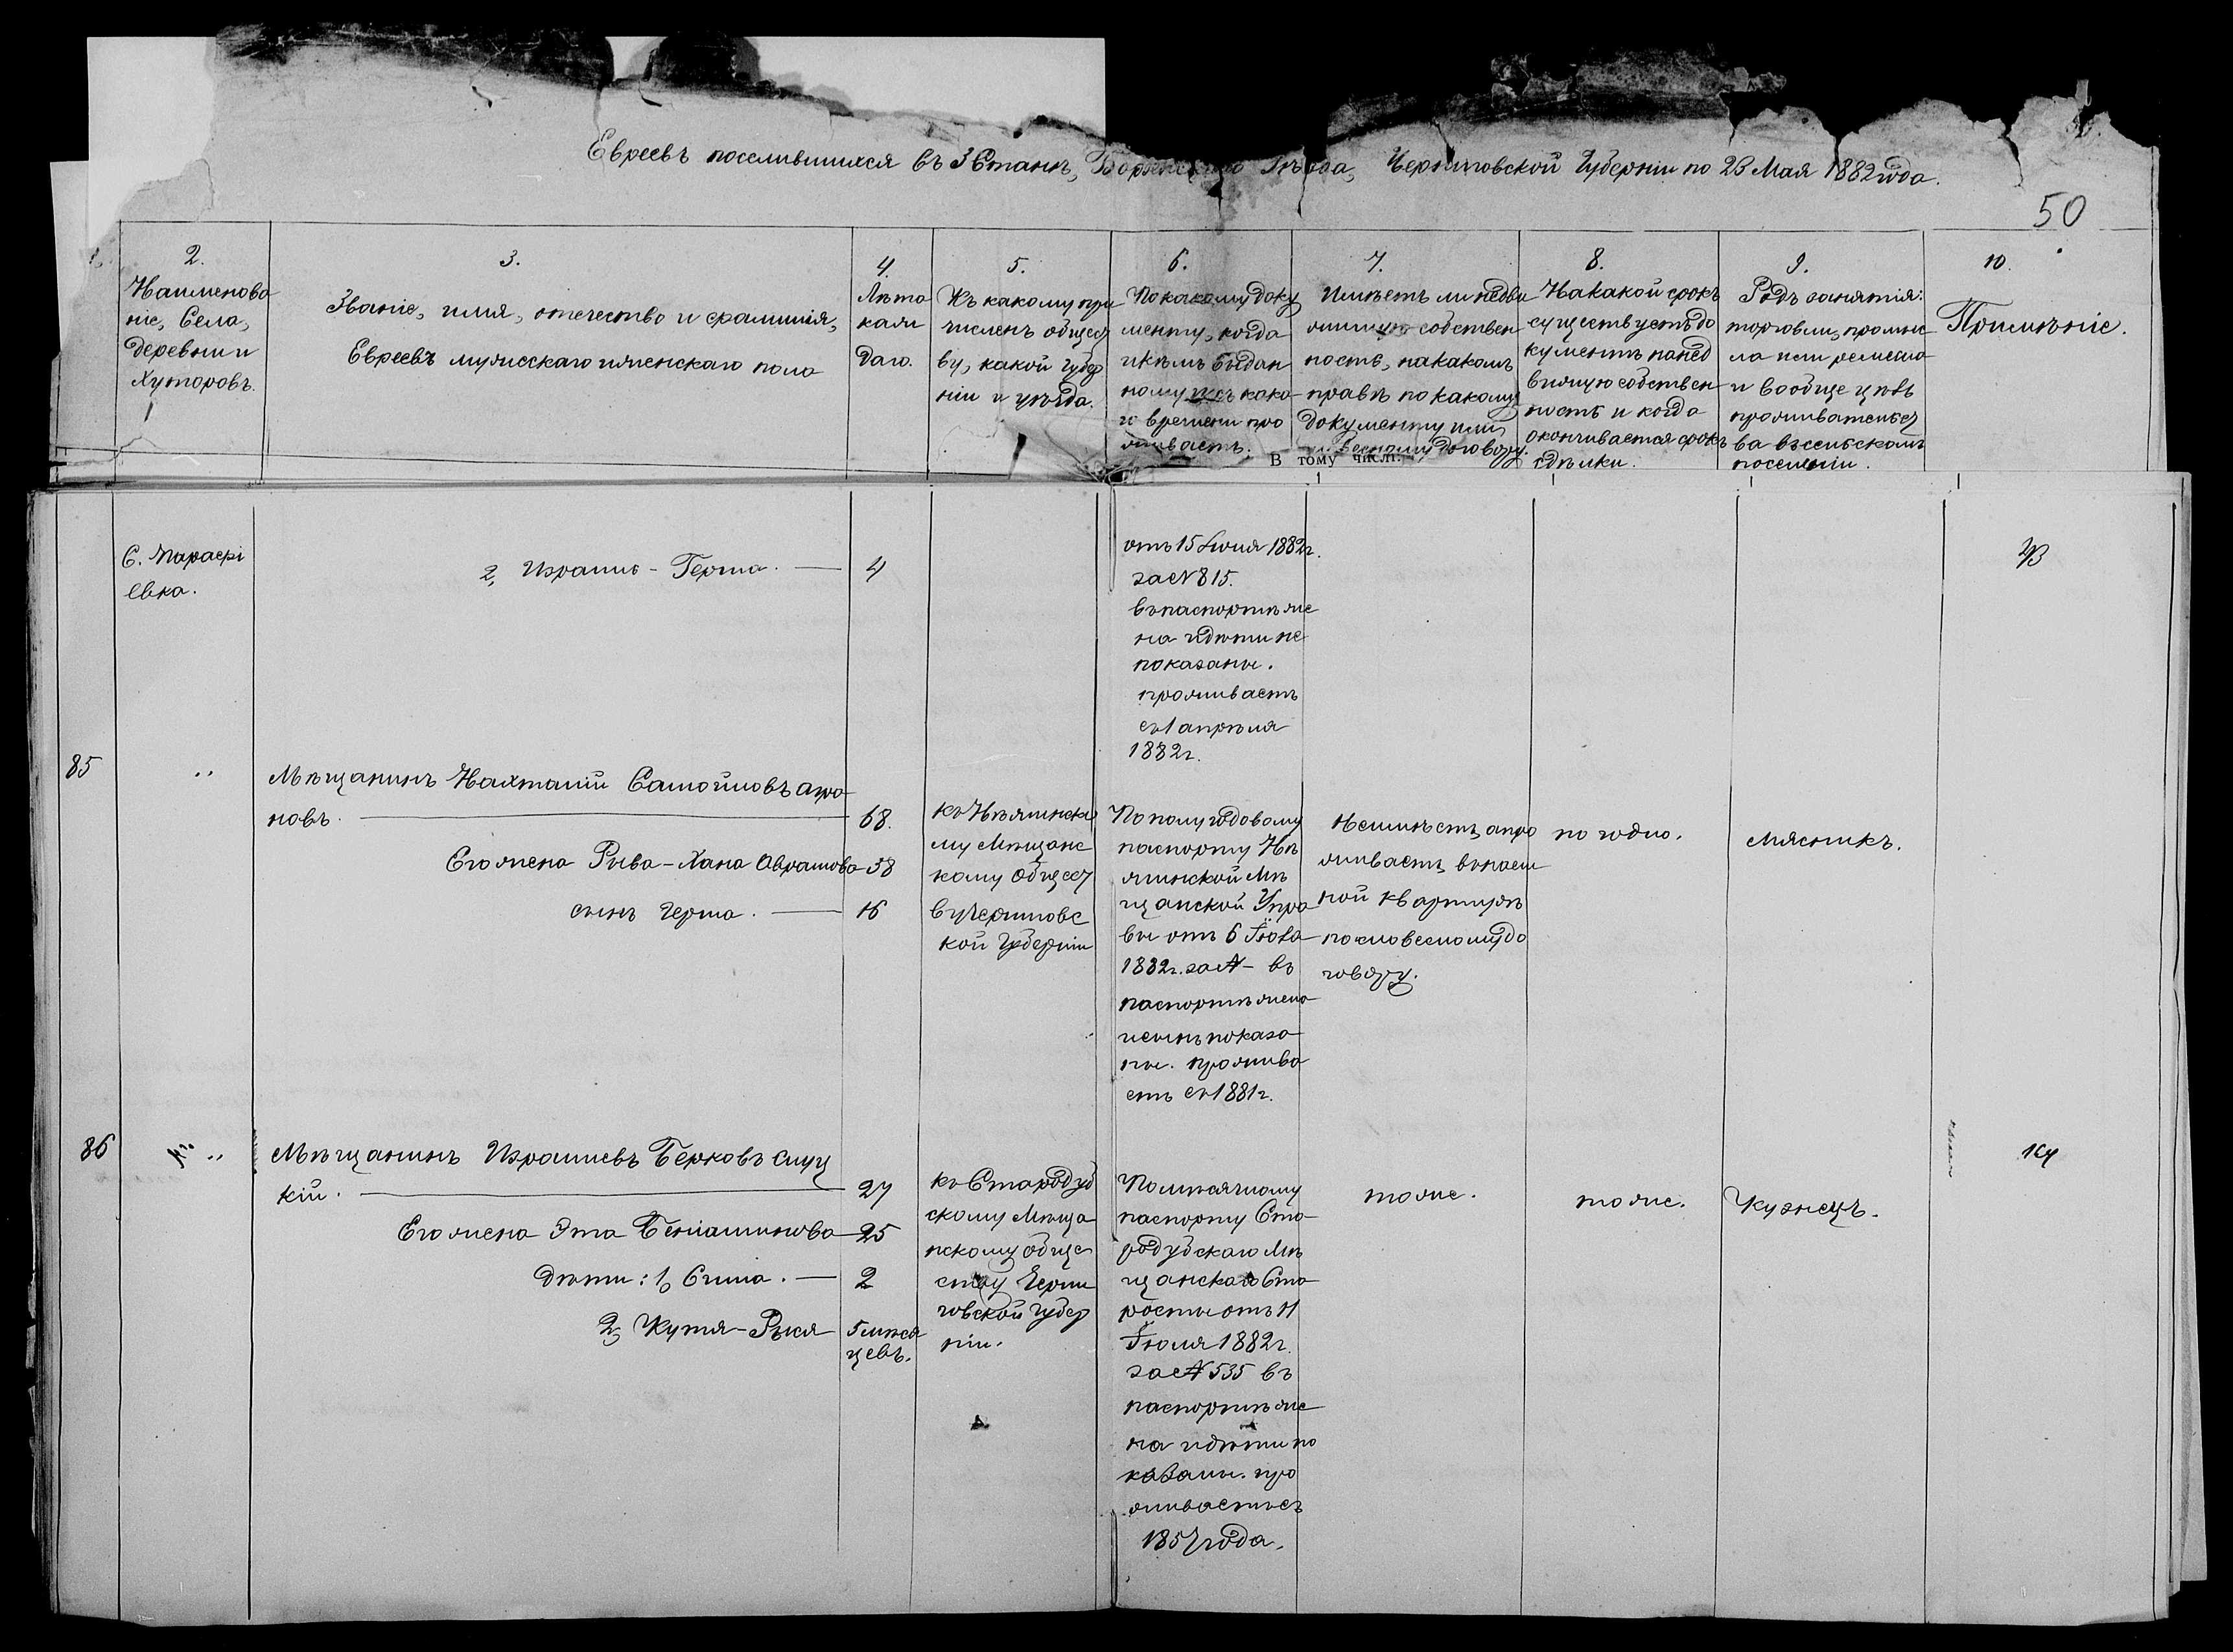 Евреевъ поселившихся въ 3 Станѣ, Борзенскаго Уѣзда, Черниговской Губерніи по 23 Мая 1882 года.
50
1.
2.
Наименова
ніе, Села,
деревни и
Хуторовъ.
3.
Званіе, имя, отечество и фамилія,
Евреевъ мужескаго и женскаго пола
4.
Лѣта
каж
даго.
5.
Къ какому при
численъ общест
ву, какой губер
ніи и уѣзда.
6.
По какому доку
менту, когда
и кѣмъ выдан
ному и съ како
го времени про
живаетъ.
7.
Имѣетъ ли недви
жимую собствен
ность, на какомъ
правѣ по какому
документу или
словесному договору.
8.
На какой срокъ
существуетъ до
кументъ на нед
вижимую собствен
ность и когда
оканчивается срокъ
сдѣлки.
9.
Родъ занятія:
торговли, промыс
ла или ремесла
и вообще цѣль
прожительст
ва въ сельскомъ
поселеніи.
10.
Примѣніе.
В тому числѣ:
С. Параскі
евка.
2, Израиль - Герша. — 4
отъ 15 Іюня 1882 г.
за № 815.
въ паспортѣ же
на и дѣти не
показаны.
проживаетъ
съ 1 апрѣля
1882 г.
85
"
Мѣщанинъ Нахманій Самойловъ Аро
новъ. — 68.
Его жена Рыва - Хана Аврамова 58
сынъ Герша. — 16
къ Нѣжинско
му Мѣщанс
кому Общест
ву Чернигове
кой Губерніи
По полугодовому
паспорту Нѣ
жинской Мѣ
щанской Упра
вы отъ 6 Іюля
1882 г. за № – въ
паспортѣ жена
и сынъ показа
ны. прожива
етъ съ 1881 г.
Неимѣетъ, а про
живаетъ въ наем
ной квартирѣ
по словесному до
говору.
по годно.
Мясникъ.
86
"
Мѣщанинъ Израилевъ Берковъ Слуц
кій. — 27
Его жена Эта Беніаминова 25
Дѣти: 1, Сима. — 2
2, Кутя - Рыся 5 мѣся
цевъ.
къ Стародуб
скому Мѣща
нскому обще
ству Черни
говской Губер
ніи.
По мѣсячному
паспорту Ста
родубскаго Мѣ
щанскаго Ста
росты отъ 11
Іюля 1882 г.
за № 535 въ
паспортѣ же
на и дѣти по
казаны. про
живаетъ съ
1857 года.
тоже.
тоже.
Кузнецъ.